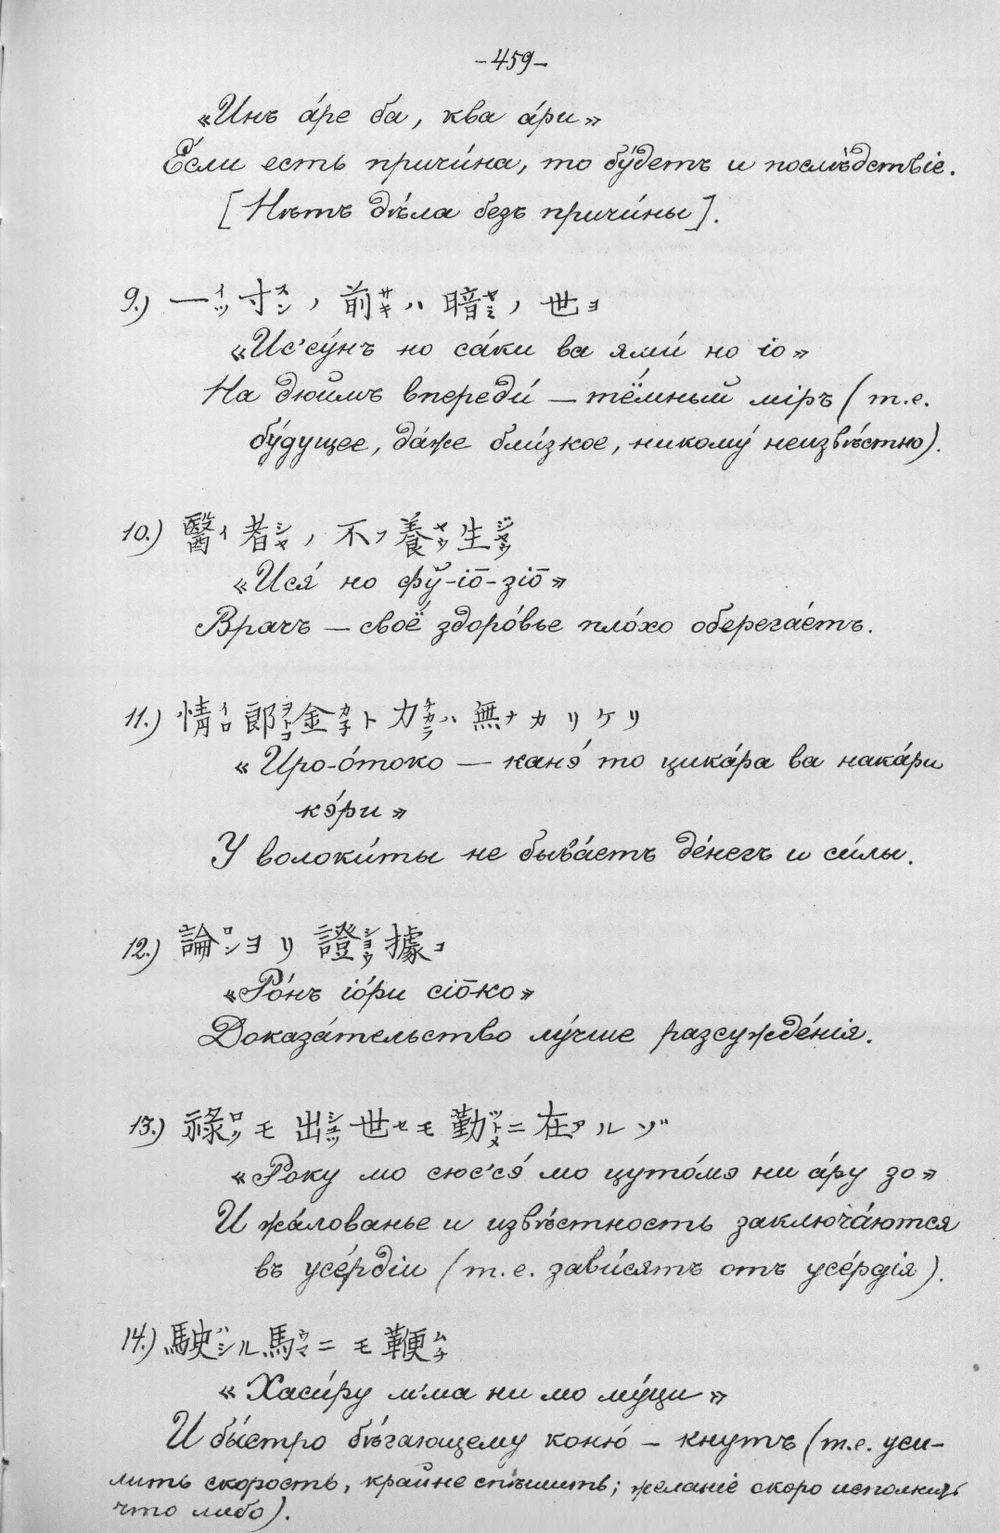 -459-
«Инъ а́ре ба, ква а́ри»
Е́сли есть причи́на, то бу́детъ и послѣ́дствіе.
[Нѣтъ дѣ́ла безъ причи́ны].
9.) 一イッ寸スンノ前サキハ暗ヤミノ世ヨ
«Ис'су́нъ но са́ки ва ями́ но іо»
На дюймъ впереди́ — тё́мный міръ (т.е.
бу́дущее, да́же бли́зкое, никому́ неизвѣ́стно).
10.) 醫イ者シャノ不フ養ヤウ生ジャウ
«Ися́ но фў-іо̄-зіо̄»
Врачъ — своё́ здоро́вье пло́хо оберега́етъ.
11.) 情イロ郎ヲトコ金カネト力チカラハ無ナカリケリ
«Иро-о́токо — канэ́ то цика́ра ва нака́ри
кэ́ри»
У волоки́ты не быва́етъ де́негъ и си́лы.
12.) 論ロンヨリ證ショウ據コ
«Ро́нъ іо́ри сіо̄ко»
Доказа́тельство лу́чше разсужде́нія.
13.) 祿ロクモ出シュッ世セモ勤ツトメニ在アルゾ
«Року мо сюс'ся́ мо цуто́мэ ни а́ру зо»
И жа́лованье и извѣ́стность заключа́ются
въ усе́рдіи (т.е. зави́сятъ отъ усе́рдія).
14.) 駛ハシル馬ウマニモ鞭ムチ
«Хаси́ру м'ма ни мо му́ци»
И бы́стро бѣ́гающему коню́ — кнутъ (т.е. уси-
лить скорость, крайне спѣшить; желаніе скоро исполнить
что либо).